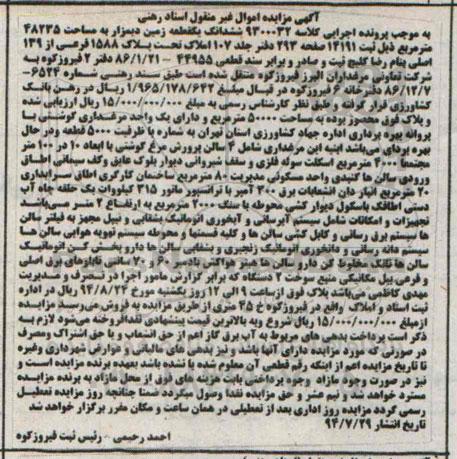 آگهی مزایده اموال غیر منقول اسناد رهنی
به موجب پرونده اجرایی کلاسه ۹۳۰۰۰۳۲ ششدانگ یکقطعه زمین دیمزار به مساحت ۴۸۲۳۵
مترمربع ذیل ثبت ۱۴۱۹۱ صفحه ۲۹۳ دفتر جلد ۱۰۷ املاک تحت پلاک ۱۵۸۸ فرعی از ۱۳۹
اصلی بنام رضا کلیج ثبت و صادر و برابر سند قطعی ۴۴۹۵۵ – ۸۶/۱/۲۱ دفتر ۲ فیروزکوه به
شرکت تعاونی مرغداران البرز فیروزکوه منتقل شده است طبق سند رهنی شماره ۶۵۲۴-
۸۶/۱۲/۷ دفترخانه ۶ فیروزکوه در قبال مبلغ ۱/۹۶۵/۱۷۸/۶۴۲ ریال در رهن بانک
کشاورزی قرار گرفته و طبق نظر کارشناس رسمی به مبلغ ۱۵/۰۰۰/۰۰۰/۰۰۰ ریال ارزیابی شده
و پلاک فوق محصور بوده به مساحت ۵۰۰۰۰ مترمربع و دارای یک واحد مرغداری گوشتی با
پروانه بهره برداری اداره جهاد کشاورزی استان تهران به شماره با ظرفیت ۵۰۰۰۰ قطعه ودر حال
بهره برداری می‌باشد ابنیه این مرغداری شامل ۴ سالن پرورش مرغ گوشتی با ابعاد ۱۰ در ۱۰۰ متر
مجتمعا ۴۰۰۰ مترمربع اسکلت سوله فلزی و سقف شیروانی دیوار بلوک عایق وکف سیمانی اطاق
ورودی سالن ها گنبدی واحد مسکونی مدیریت ۸۰ مترمربع ساختمان کارگری اطاق سرایداری
۲۰ مترمربع انبار دان انشعابات برق ۳۰۰ آمپر با ترانسپور مانور ۳۱۵ کیلووات یک حلقه چاه آب
دستی اطاقک باسکول دیوار کشی محوطه با سنگ ۲۰۰۰ مترمربع به ارتفاع ۲ متر می‌باشد
تجهیزات و امکانات شامل سیستم آبرسانی و آبخوری اتوماتیک بشقابی و نیپل مجهز به فیلتر سالن
ها سیستم برق رسانی و کابل کشی سالن ها و کلیه قسمتها و محوطه سیستم تهویه هوایی سالن ها
سیستم دانه رسانی و دانخوری اتوماتیک زنجیری و بشقابی سالن ها دارو پخش کن اتوماتیک
سالن ها تانک مخلوط کن دارو سالن ها هیتر هواکش بادسر ۶۰ و ۷۰ سانتی تابلوهای برق اصلی
و فرعی بیل مکانیکی منبع سوخت ۲ دستگاه که برابر گزارش مامور اجرا در تصرف و مدیریت
مهدی کاظمی می‌باشد پلاک فوق ازساعت ۹ الی ۱۲ روز یکشنبه مورخ ۹۴/۸/۲۴ ریال در اداره
ثبت اسناد و املاک واقع در فیروزکوه خ ۴۵ متری از طریق مزایده به فروش می‌رسد مزایده
ازمبلغ ۱۵/۰۰۰/۰۰۰/۰۰۰ ریال شروع وبه بالاترین قیمت پیشنهادی نقدافروخته می‌شود لازم به
ذکر است پرداخت بدهی های مربوط به آب برق گاز اعم از حق انشعاب و یا حق اشتراک ومصرف
در صورتی که مورد مزایده دارای آنها باشد و نیز بدهی های مالیاتی و عوارض شهرداری وغیره
تا تاریخ مزایده اعم از اینکه رقم قطعی آن معلوم شده یا نشده باشد بعهده برنده مزایده است و
نیز در صورت وجوه مازاد وجوه پرداختی بابت هزینه های فوق از محل مازاد به برنده مزایده
مسترد خواهد شد و نیم عشر و حق مزایده نقدا وصول میگردد ضمنا چنانچه روز مزایده تعطیل
رسمی گردد مزایده روز اداری بعد از تعطیلی در همان ساعت و مکان مقرر برگزار خواهد شد
تاریخ انتشار ۹۴/۷/۲۹
احمد رحیمی - رئیس ثبت فیروزکوه